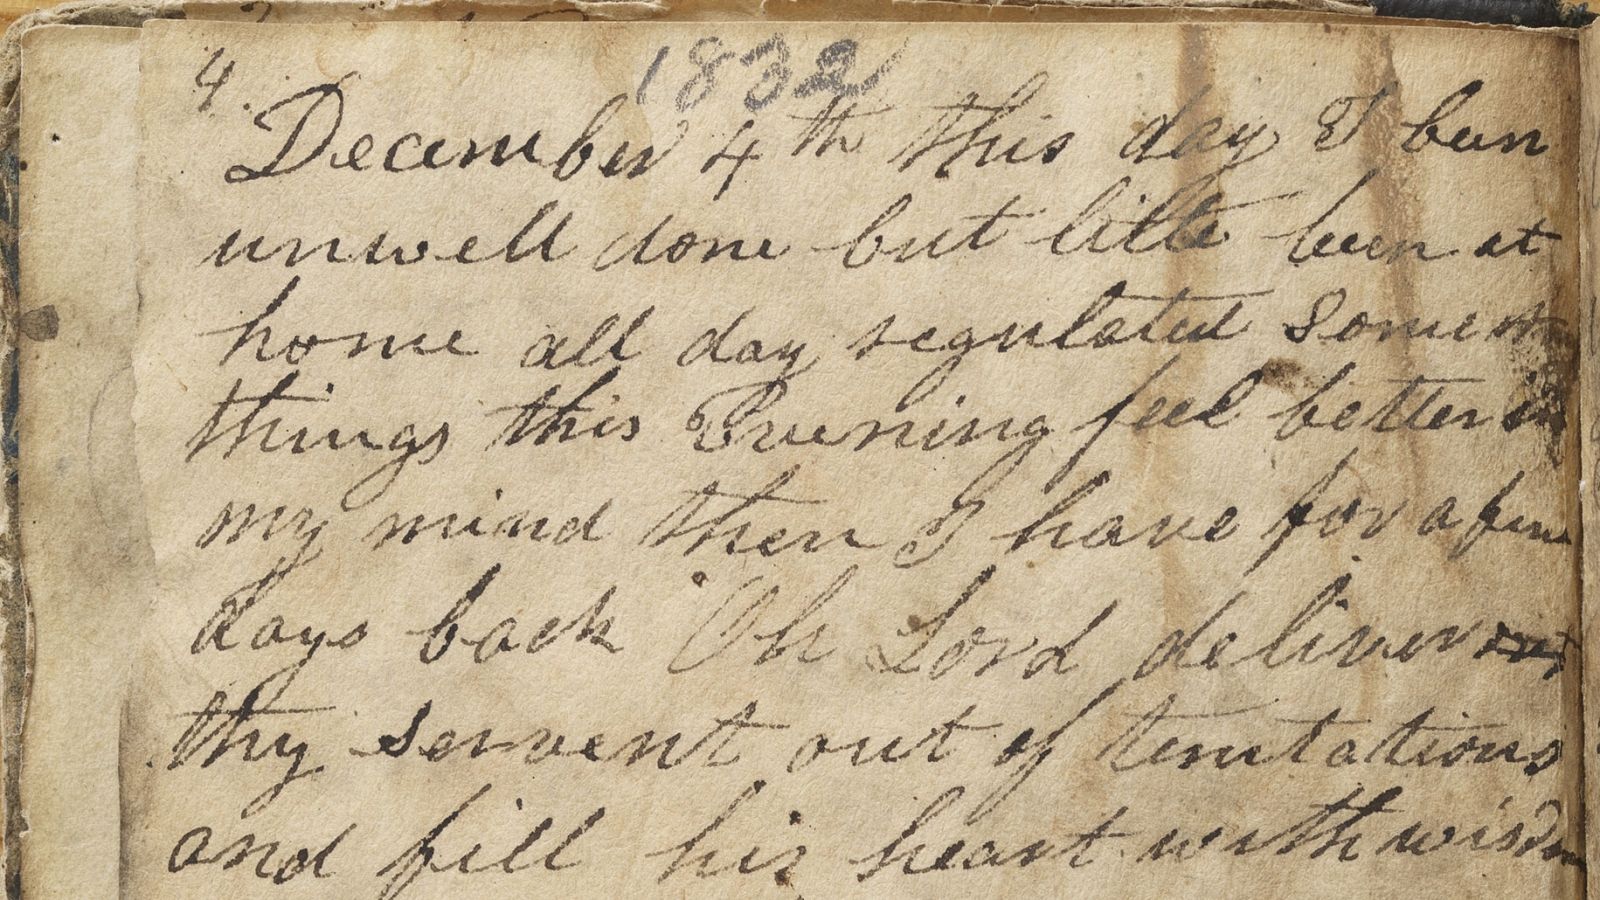 1832
4.
December 4th this day I been
unwell done but little been at
home all day regulated some
things this Evening feel better in
my mind then I have for a few
days back Oh Lord deliver
thy servent out of temtations
and fill his heart with wisdom